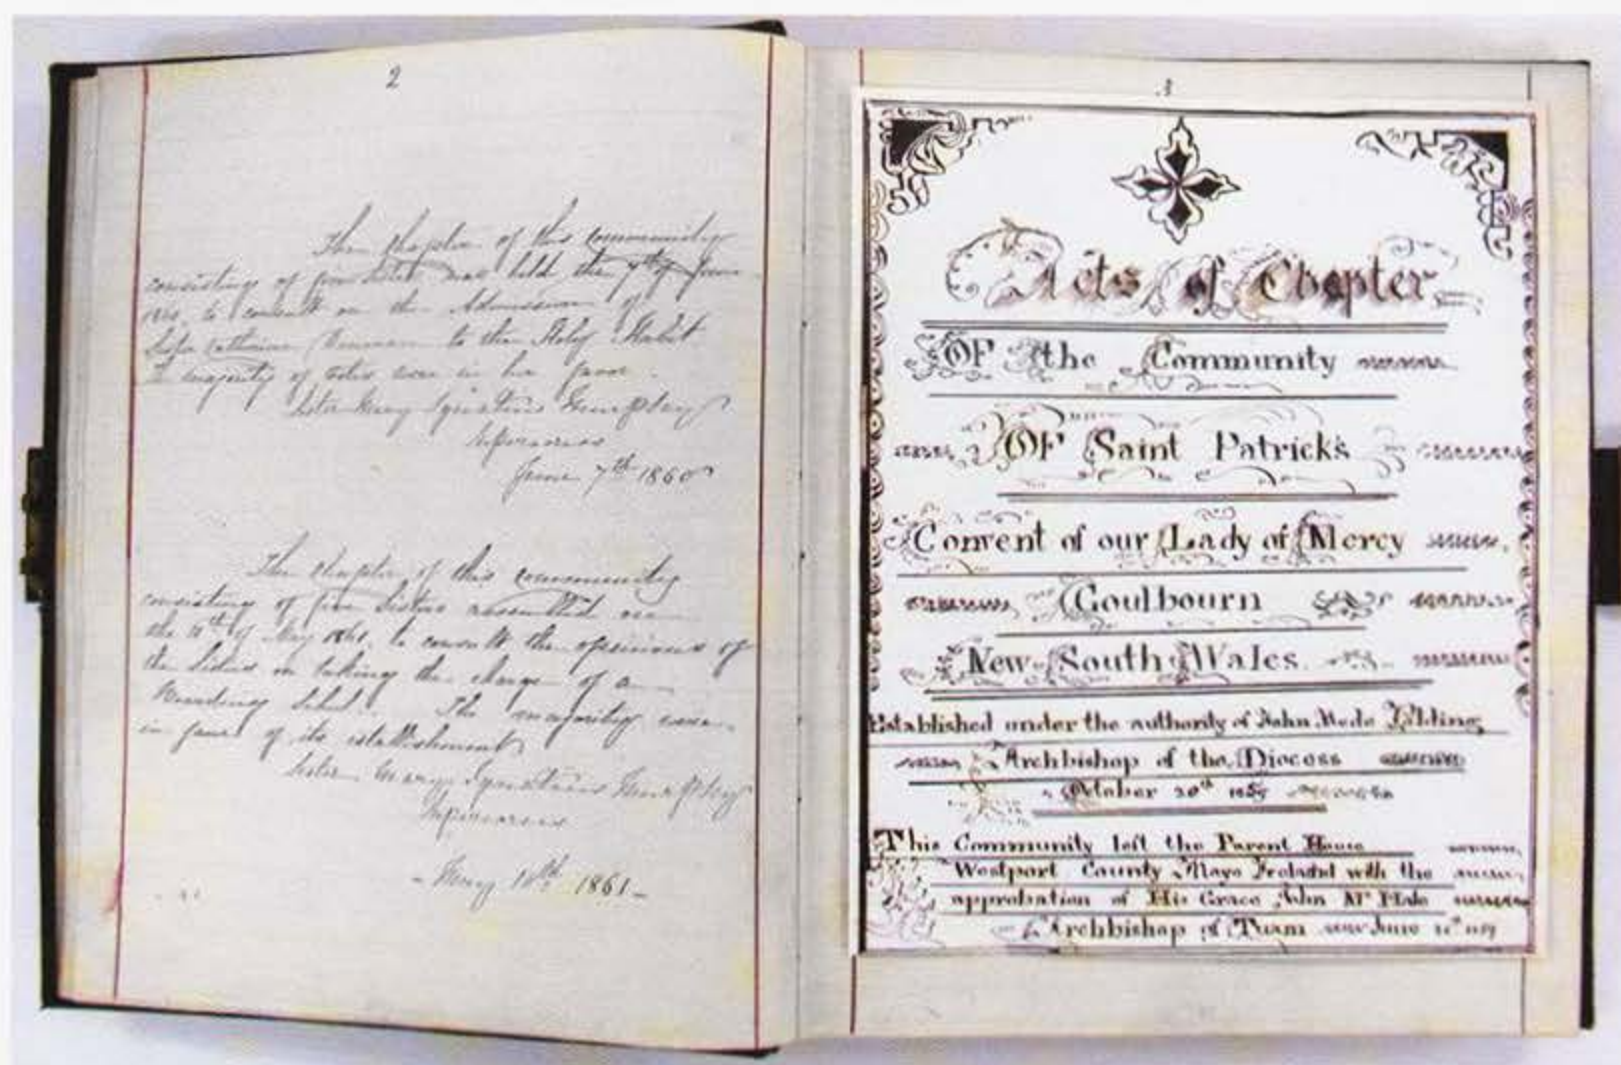 2
The Chapter of this community
consisting of four Sisters was held the 7th of June
1860, to consult on the Admission of
Sister Catherine to the Holy Habit
majority of votes were in her favor.
Sister Mary Ignatius
Superioress
June 7th 1860
The Chapter of this community
consisting of five Sisters assembled on
the 10th of May 1861, to consult the opinions of
the Sisters on taking the charge of a
Boarding School. The majority were
in favor of its establishment
Sister Mary Ignatius
Superioress
- May 10th 1861 -
3
Acts of Chapter
OF the Community
OF Saint Patrick's
Convent of our Lady of Mercy
Goulbourn
New South Wales
Established under the authority of John Bede Polding
Archbishop of the Diocess
October 20th
This Community left the Parent House
Westport County Mayo Ireland with the
approbation of His Grace John Mc Hale
Archbishop of Tuam June